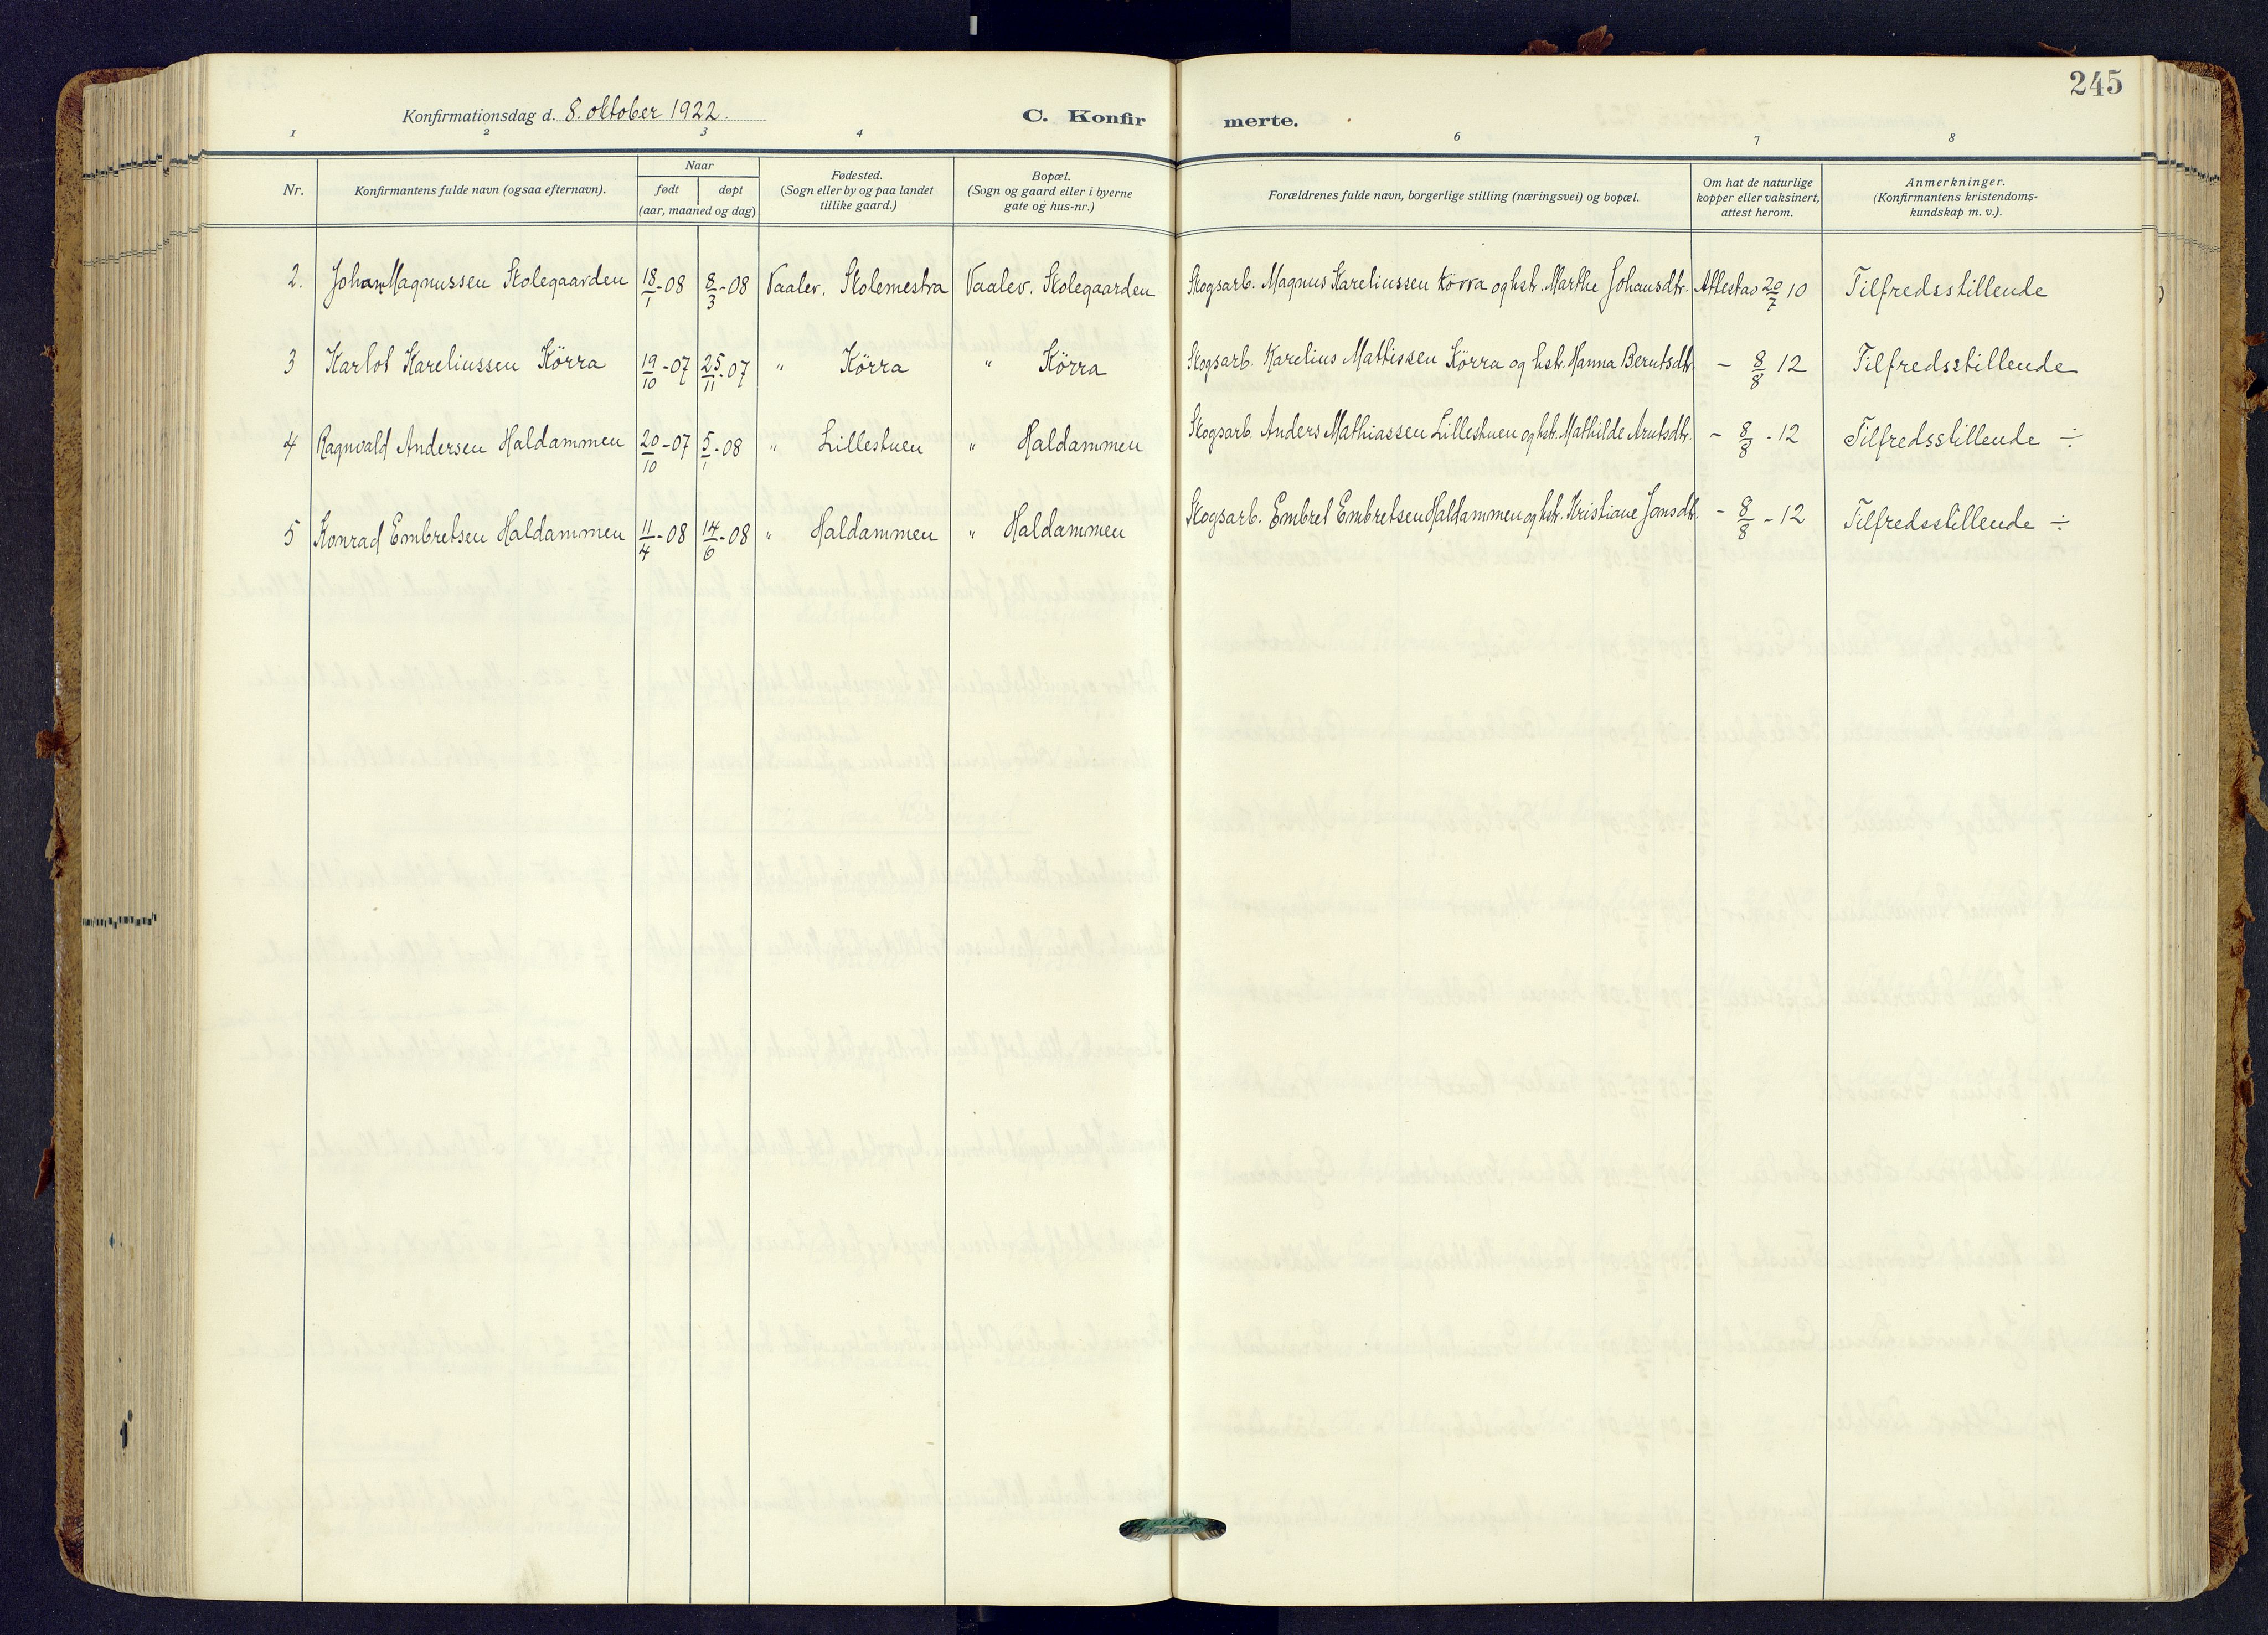 245
Konfirmationsdag d. 8. oktober 1922.
C. Konfirmerte.
1 2 3 4 6 7 8
Nr.
Konfirmantens fulde navn (ogsaa efternavn).
Naar
født døpt
(aar, maaned og dag)
Fødested.
(Sogn eller by og paa landet
tillike gaard.)
Bopæl.
(Sogn og gaard eller i byerne
gate og hus-nr.)
Forældrenes fulde navn, borgerlige stilling (næringsvei) og bopæl.
Om hat de naturlige
kopper eller vaksinert,
attest herom.
Anmerkninger.
(Konfirmantens kristendoms-
kundskap m. v.).
2. Johan Magnussen Skolegaarden 18/1-08 8/3-08 Vaaler. Skolemestra Vaaler. Skolegaarden Skogsarb. Magnus Kareliussen Körra og hstr. Marthe Johansdtr. Attest av 20/7 10 Tilfredsstillende
3 Karlot Kareliussen Körra 19/10-07 25/11-07 " Körra " Körra Skogsarb. Karelius Mattissen Körra og hstr. Hanna Berntsdtr. - 8/8 12 Tilfredsstillende
4 Ragnvald Andersen Haldammen 20/10-07 5/1-08 " Lillestuen " Haldammen Skogsarb. Anders Mathiassen Lillestuen og hstr. Mathilde Arntsdtr. - 8/8-12 Tilfredsstillende ÷
5 Konrad Embretsen Haldammen 11/4-08 14/6-08 " Haldammen " Haldammen Skogsarb. Embret Embretsen Haldammen og hstr. Kristiane Jonsdtr. - 8/8-12 Tilfredsstillende ÷